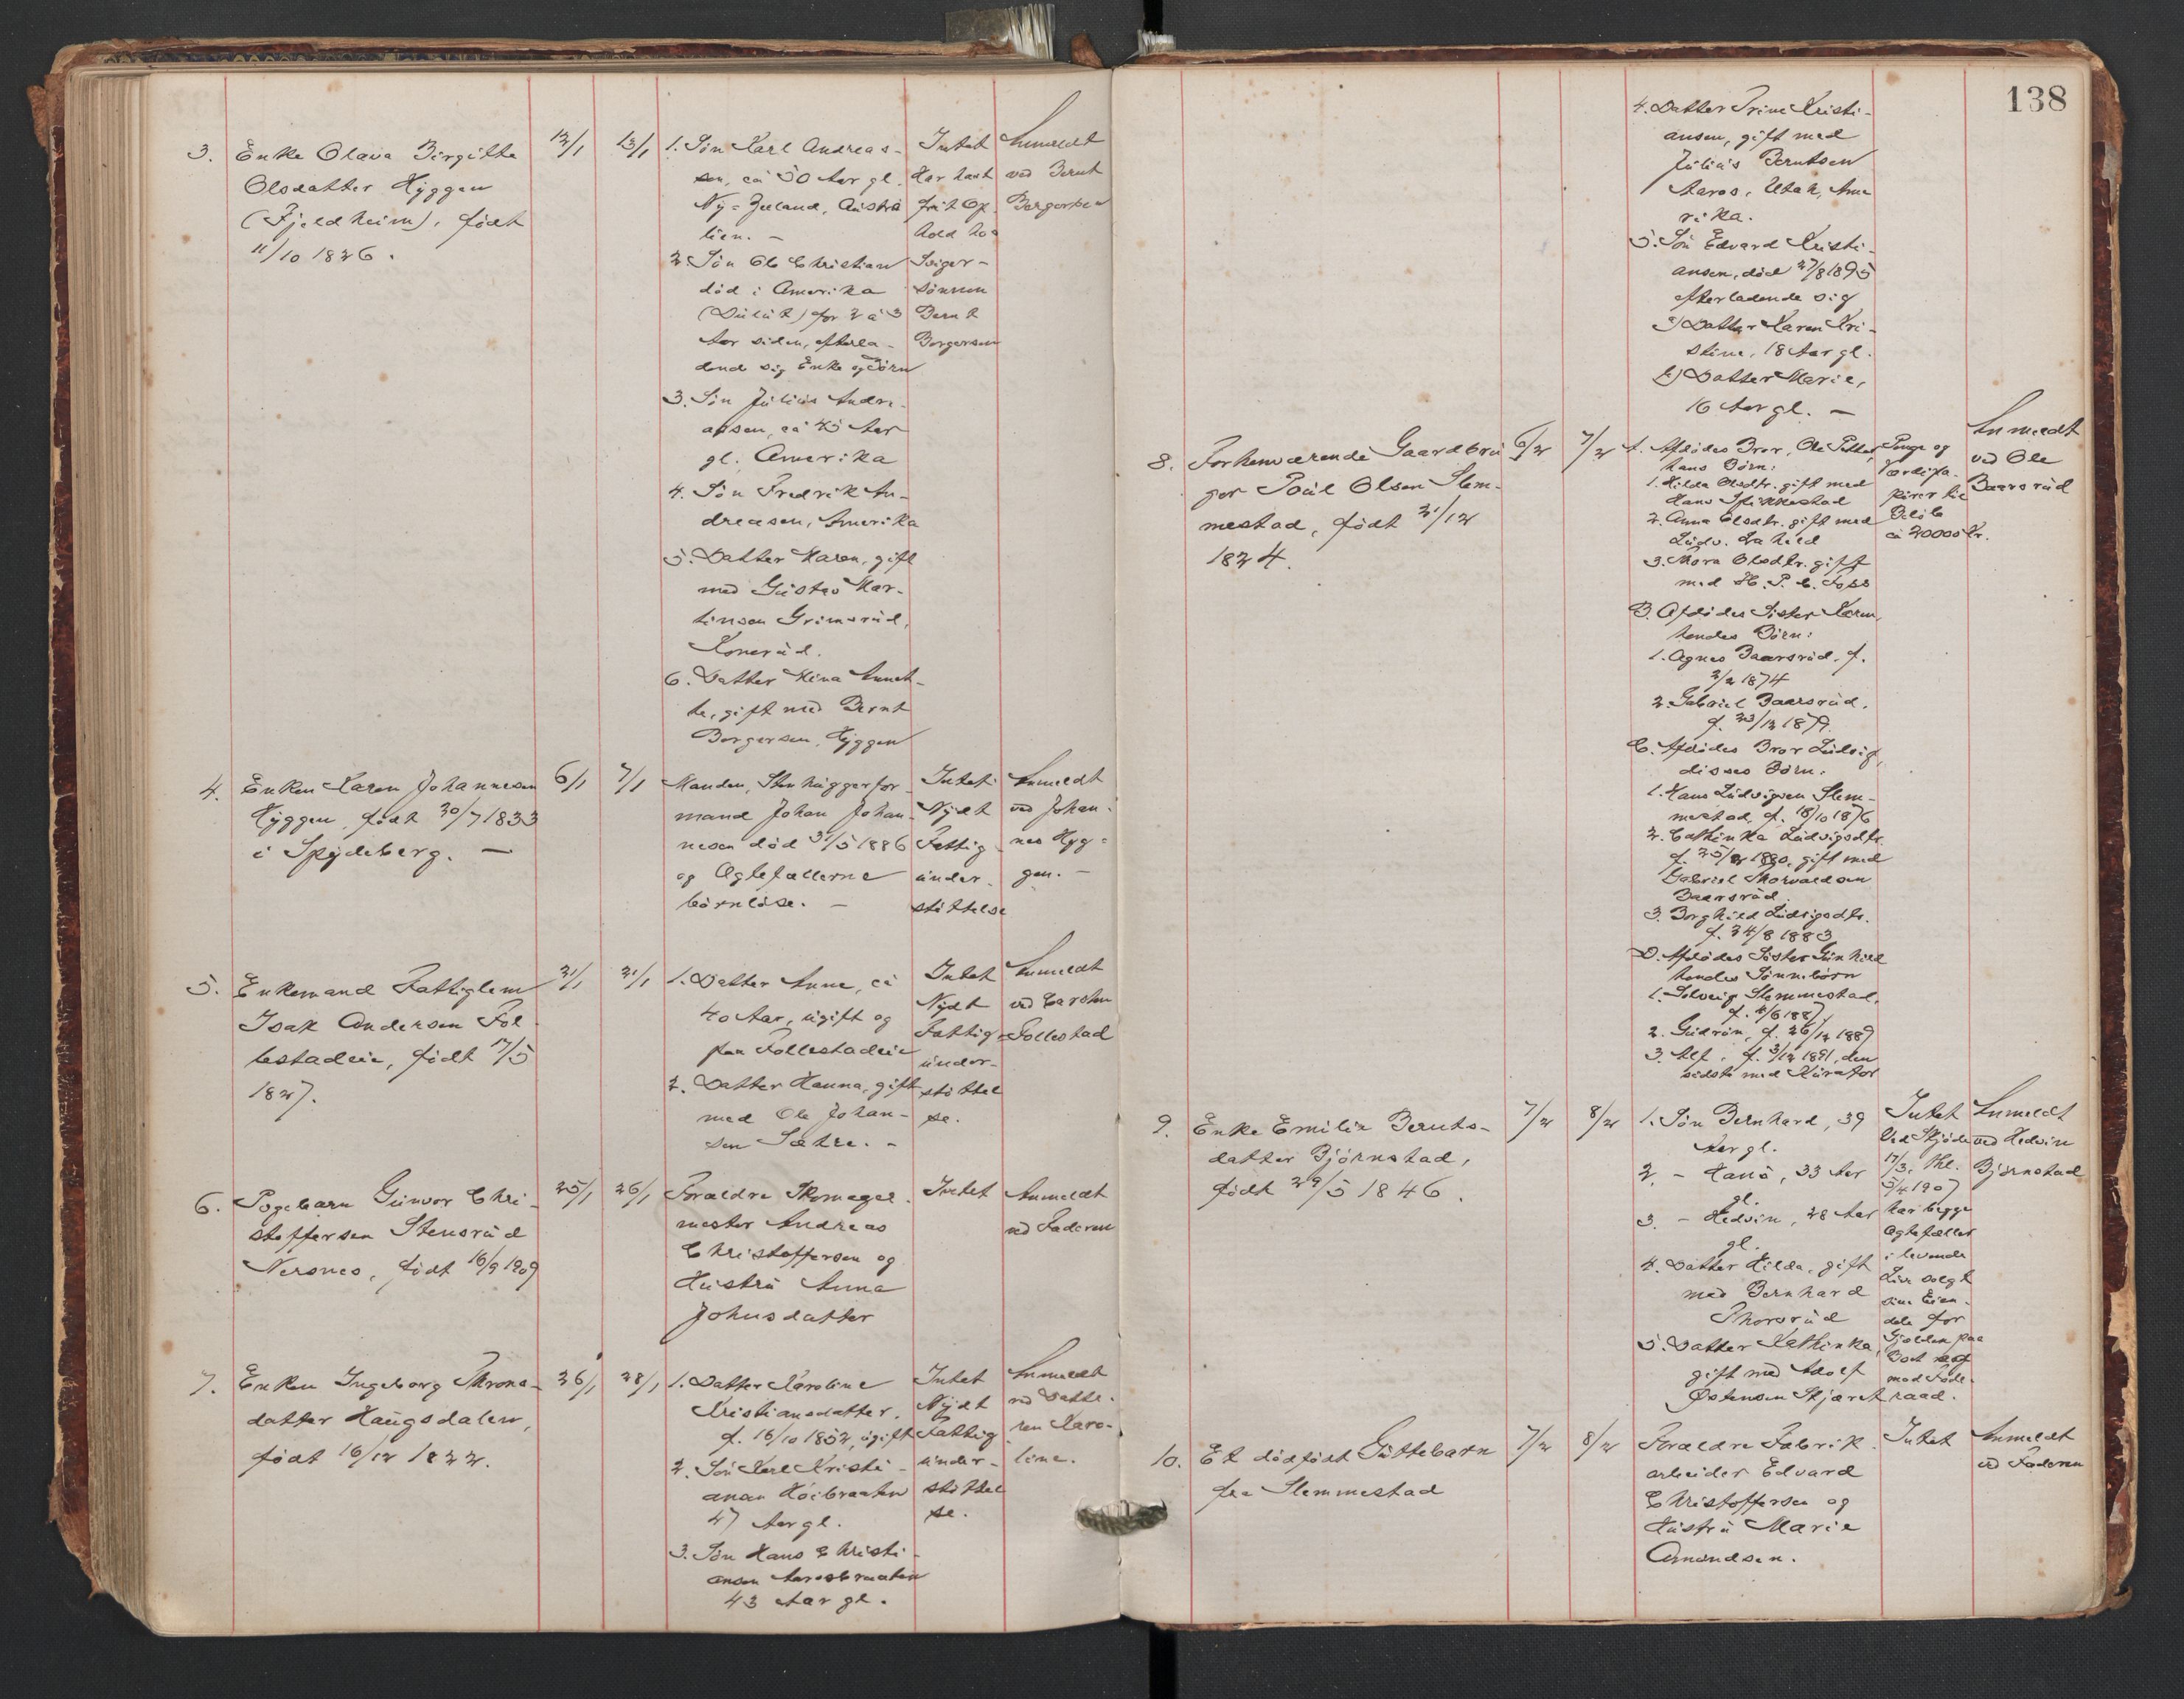 3.
Enke Olava Birgitte
Olsdatter Hyggen
(Fjeldheim), født
11/10 1826.
12/1
13/1
1. Søn Karl Andreas-
sen, ca 50 Aar gl.
Ny-Zeeland, Austra
lien. —
2. Søn Ole Christian
død i Amerika
(Duluth) for 2 à 3
Aar siden, efterla-
dende sig Enke og Børn
3. Søn Julius Andre-
assen, ca 45 Aar
gl. Amerika
4. Søn Fredrik An-
dreasen, Amerika
5. Datter Karen, gift
med Gustav Mar-
tinsen Grimsrud,
6. Datter Mina Annet-
te, gift med Bernt
Borgersen, Hyggen
Intet
Har havt
frit Op-
hold hos
Sviger-
sønnen
Bernt
Borgersen
Anmeldt
ved Bernt
Borgersen
4.
Enken Karen Johannesen
Hyggen, født 30/7 1833
i Spydeberg. —
6/1
7/1
Manden, Stenhuggerfor-
mand Johan Johan-
nesen død 31/5 1886
og Ægtefællerne
barnløse. —
Intet
Nydt
Fattig-
under-
støttelse
Anmeldt
ved Johan-
nes Hyg-
gen. —
5.
Enkemand Fattiglem
Isak Andersen Fol
lestadeie, født 17/5
1827.
21/1
21/1
1. Datter Anne, ca
40 Aar, ugift og
paa Follestadeie
2. Datter Hanna, gift
med Ole Johan-
sen Sætre. —
Intet
Nydt
Fattig-
under-
støttel
se.
Anmeldt
ved Carsten
Follestad
6.
Pigebarn Gunvor Chri-
stoffersen Stensrud
Nersnes, født 16/9 1909
25/1
26/1
Forældre Skomager-
mester Andreas
Christoffersen og
Hustru Anna
Johnsdatter
Intet
Anmeldt
ved Faderen
7.
Enken Ingeborg Thrond-
datter Haugsdalen,
født 16/12 1822.
26/1
28/1
1. Datter Karoline
Kristiansdatter,
f. 16/10 1852, ugift
2. Søn Karl Kristi-
ansen Høibraaten
47 Aar gl.
3. Søn Hans Christi-
ansen Aarosbraaten
43 Aar gl.
Intet
Nydt
Fattig
under-
støttel
se.
Anmeldt
ved Datte-
ren Karo-
line.
138
4. Datter Trine Kristi-
ansen, gift med
Julius Berntsen
Aaros, Utah, Ame
rika.
5. Søn Edvard Kristi-
ansen, død 27/8 1895
efterladende sig
a) Datter Karen Kri-
stine, 18 Aar gl.
b) Datter Marie,
16 Aar gl. —
8.
Forhenværende Gaardbru
ger Poul Olsen Slem-
mestad, født 21/12
1824.
6/2
7/2
A. Afdødes Bror, Ole Petter,
hans Børn:
1. Hilda Olsdtr. gift med
Hans
2. Anna Olsdtr. gift med
Ludv.
3. Mora Olsdtr. gift
med H. P. C. Foss
B. Afdødes Søster Karen,
hendes Børn:
1. Agnes Baarsrud, f.
2/2 1874
2. Gabriel Baarsrud,
f. 23/12 1879.
C. Afdødes Bror Ludvig,
disses Børn:
1. Hans Ludvigsen Slem-
mestad, f. 18/10 1876
2. Cathinka Ludvigsdtr.
f. 25/2 1880, gift med
Gabriel Thorvaldsen
Baarsrud
3. Borghild Ludvigsdtr.
f. 24/8 1883
D. Afdødes Søster Gunhild
hendes Sønnebørn
1. Solveig Slemmestad,
f. 4/6 1887,
2. Gudrun, f. 26/12 1889
3. Alf, f. 3/12 1891, den
sidste med Kurator
Penge og
Værdipa-
pirer til
Beløb
ca 20000 kr.
Anmeldt
ved Ole
Baarsrud
9.
Enke Emilie Bernts-
datter Bjørnstad,
født 29/5 1846.
7/2
8/2
1. Søn Bernhard, 39
Aar gl.
2. — Hans, 33 Aar
gl.
3. — Hedvin, 28 Aar
gl.
4. Datter Hilda, gift
med Bernhard
Thorsrud
5. Datter Kathinka,
gift med Adolf
Østensen Skjæret
Intet
Ved Skjøde
17/3, thl.
5/4 1907
har begge
Ægtefæller
i levende
Live solgt
sin Eien-
del for
Gjælden paa
Bod og
mod Føde-
raad.
Anmeldt
ved Hedvin
Bjørnstad
10.
Et dødfødt Guttebarn
fra Slemmestad
7/2
8/2
Forældre Fabrik-
arbeider Edvard
Christoffersen og
Hustru Marie
Amundsen.
Intet
Anmeldt
ved Faderen